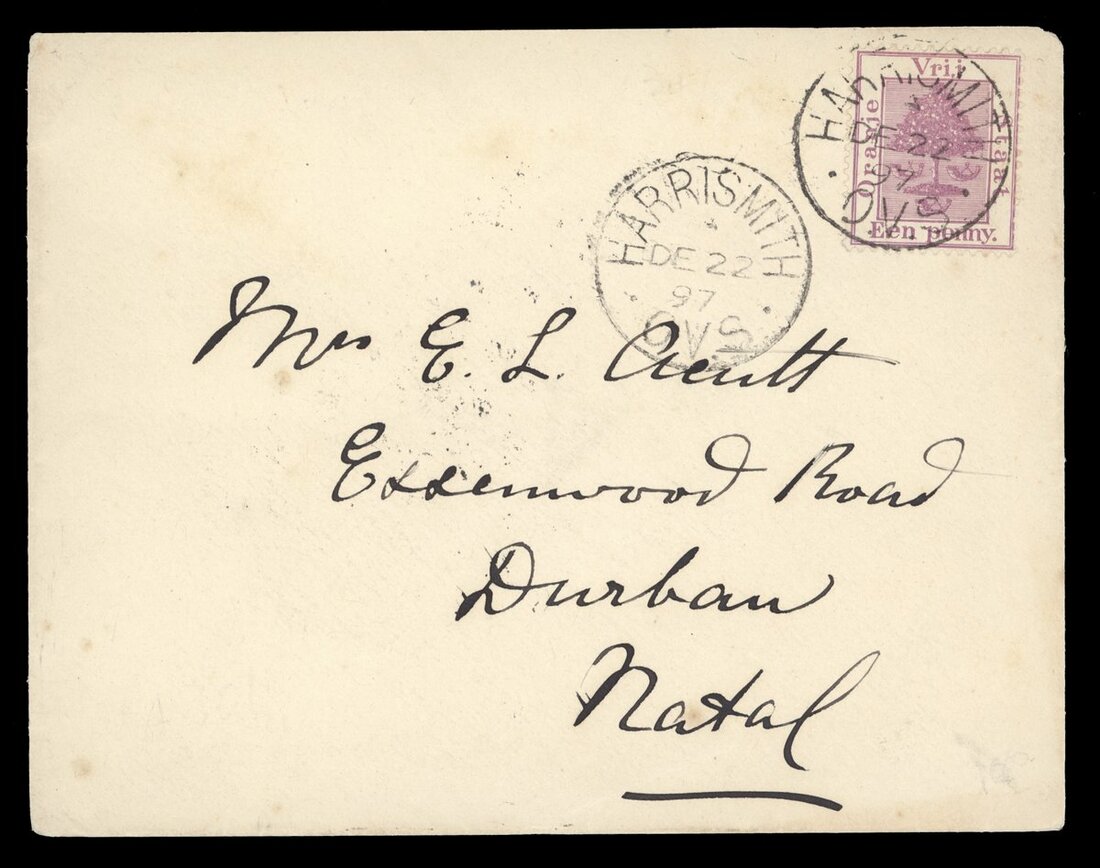 Vrij
Oranje
Staat
Een penny.
HARRISMITH
DE 22
97
O.V.S.
HARRISMITH
DE 22
97
OVS
Mrs E. L. Acutt
Essenwood Road
Durban
Natal